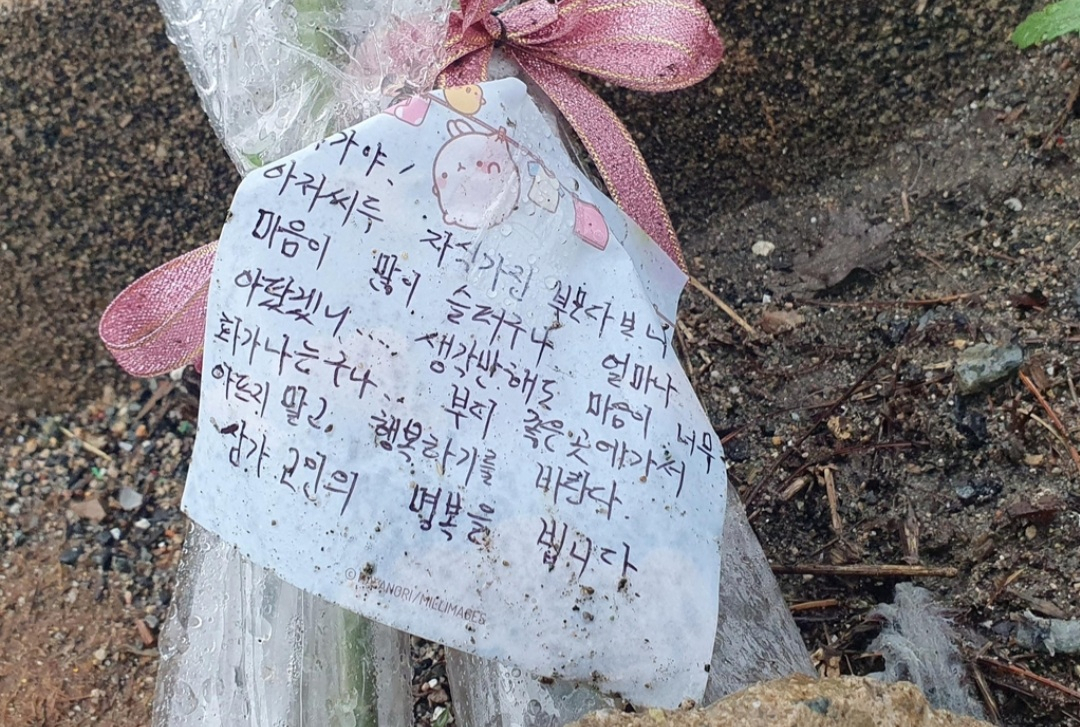 가야!
아저씨두 자식가진 부모다 보니
마음이 많이 슬퍼구나 얼마나
아팠겠니... 생각만해도 마음이 너무
화가나는구나.. 부디 좋은곳에가서
아프지 말고, 행복하기를 바람다.
삼가 고인의 명복을 빕니다
©HAYANORI/MILLIMAGES